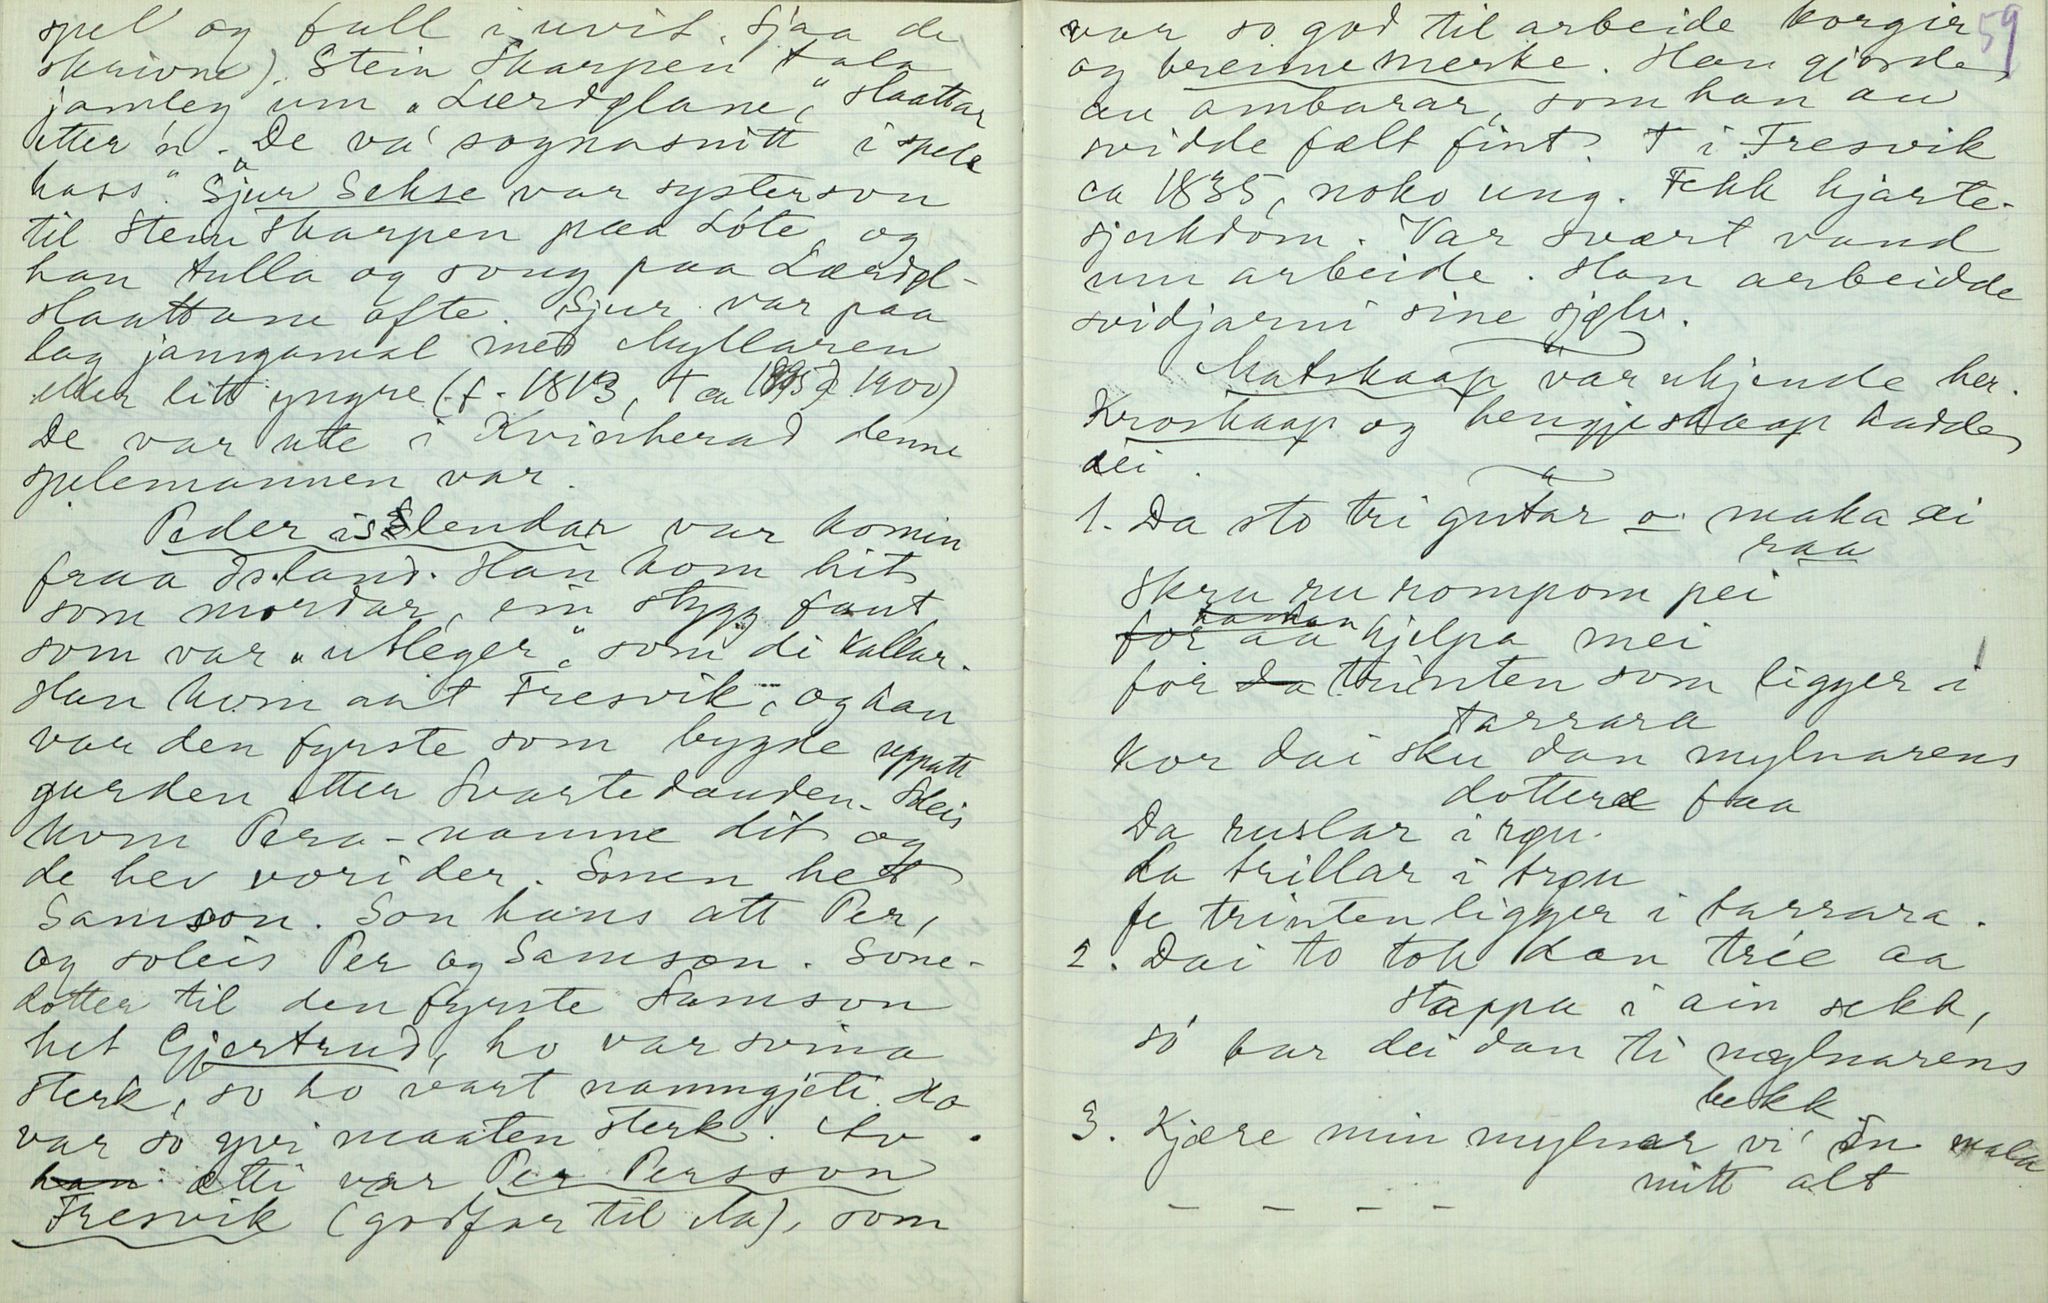 spel og fall i uvit. sjaa de
skrivne). Stein Skarpen tala
jamleg um "Lærdglane", slaattar
etter 'n. "De va' sognasnitt i spele
hass". Sjur Sekse var systerson
til Stein Skarpen paa Lote, og
han tulla og song paa Lærdgl-
slaattane ofte. Sjur var paa
lag jamgamal med Myllaren
eller litt yngre (f. 1813, † ca 1895 à 1900)
De var ute i Kvinherad denne
spelemannen var.
Peder islendar var komin
fraa Island. Han kom hit
som mordar, ein stygg fant,
som var "utleger", som di kallar.
Han kom aat Fresvik, og han
var den fyrste som bygde uppatt
garden etter Svartedauden. Soleis
kom Pera-namne dit og
de hev vori der. Sonen hett
Samson. Son hans att Per,
og soleis Per og Samson. Sone-
dotter til den fyrste Samson
het Gjertrud, ho var svina
sterk, so ho vart namngjeti. Ho
var so yvi maaten sterk. Av
han ætti var Per Persson
Fresvik (godfar til Na), som
59
var so god til arbeide korgir
og brennemerke. Han gjorde
au ambarar, som han au
svidde fælt fint. † i Fresvik
ca 1835, noko ung. Fekk hjarte-
sjukdom. Var svært vand
um arbeide. Han arbeidde
svidjarni sine sjølv.
Matskaap var ukjende her.
Kroskaap og hengjeskaap hadde
dei.
1. Da sto tri gutar o maka ei
raa
Skru ru rompom pei
for aa hjelpa mei
for da trinten som ligger i
tarrara
Kor dai sku dan mylnarens
dottere faa
Da ruslar i røu.
da trillar i trøu
fe trinten ligger i tarrara.
2. Dai to tok dan trie aa
stappa i ain sekk,
so bar dei dan ti mylnarens
bekk
3. Kjære min mylnar vi' òn mala
mitt alt
- - - -